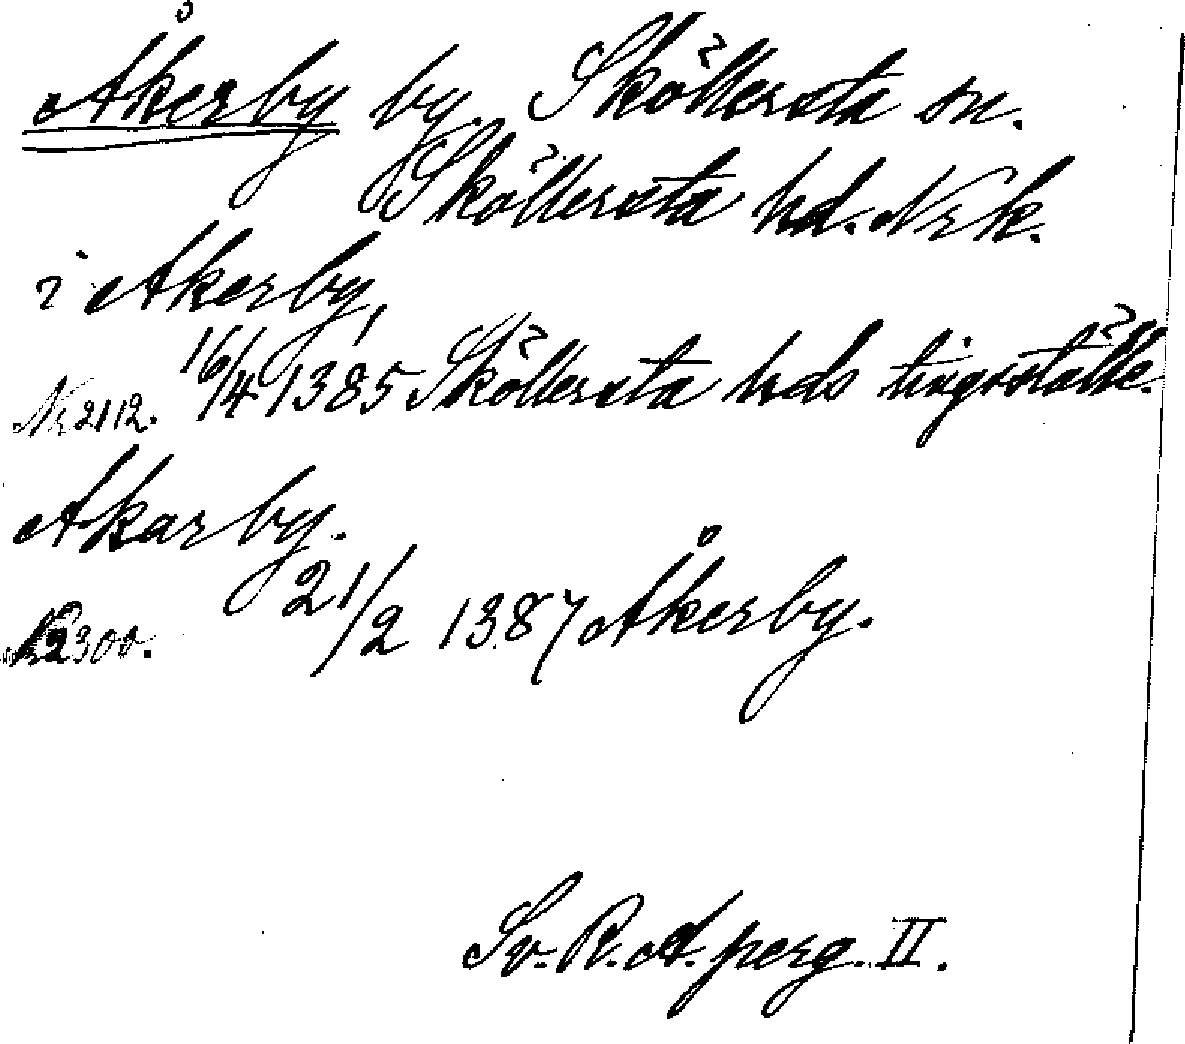 Åkerby by. Sköllersta sn.
Sköllersta hd. Nrk.
i Akerby,
Nr 2112. 16/4 1385 Sköllersta hds tingsställe.
Akarby.
Nr 2300. 21/2 1387 Åkerby.
Sv. R. A. perg. II.